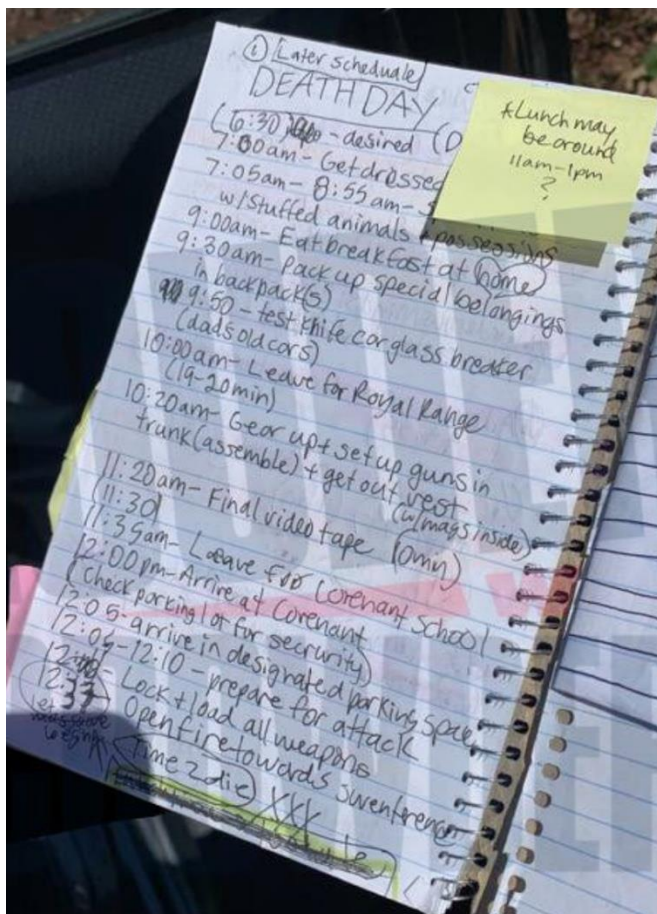 ① Later schedule
DEATH DAY
(6:30 - desired (D
7:00am- Get dressed
7:05am- 8:55am-
w/stuffed animals + possessions
9:00am- Eat breakfast at home
9:30am- Pack up special belongings
in backpack(s)
9:50 - test knife car glass breaker
(dads old cars)
10:00am- Leave for Royal Range
(19-20min)
10:20am- Gear up + set up guns in
trunk (assemble) + get out vest
(w/ mags inside)
11:20am- Final video tape
(11:30)
11:35am- Leave for Covenant School
12:00pm- Arrive at Covenant
(check parking lot for security)
12:05- arrive in designated parking space
-12:10- prepare for attack
Lock + load all weapons
12:33 Open fire towards
Time 2 die XXX
*Lunch may
be around
11am-1pm
?